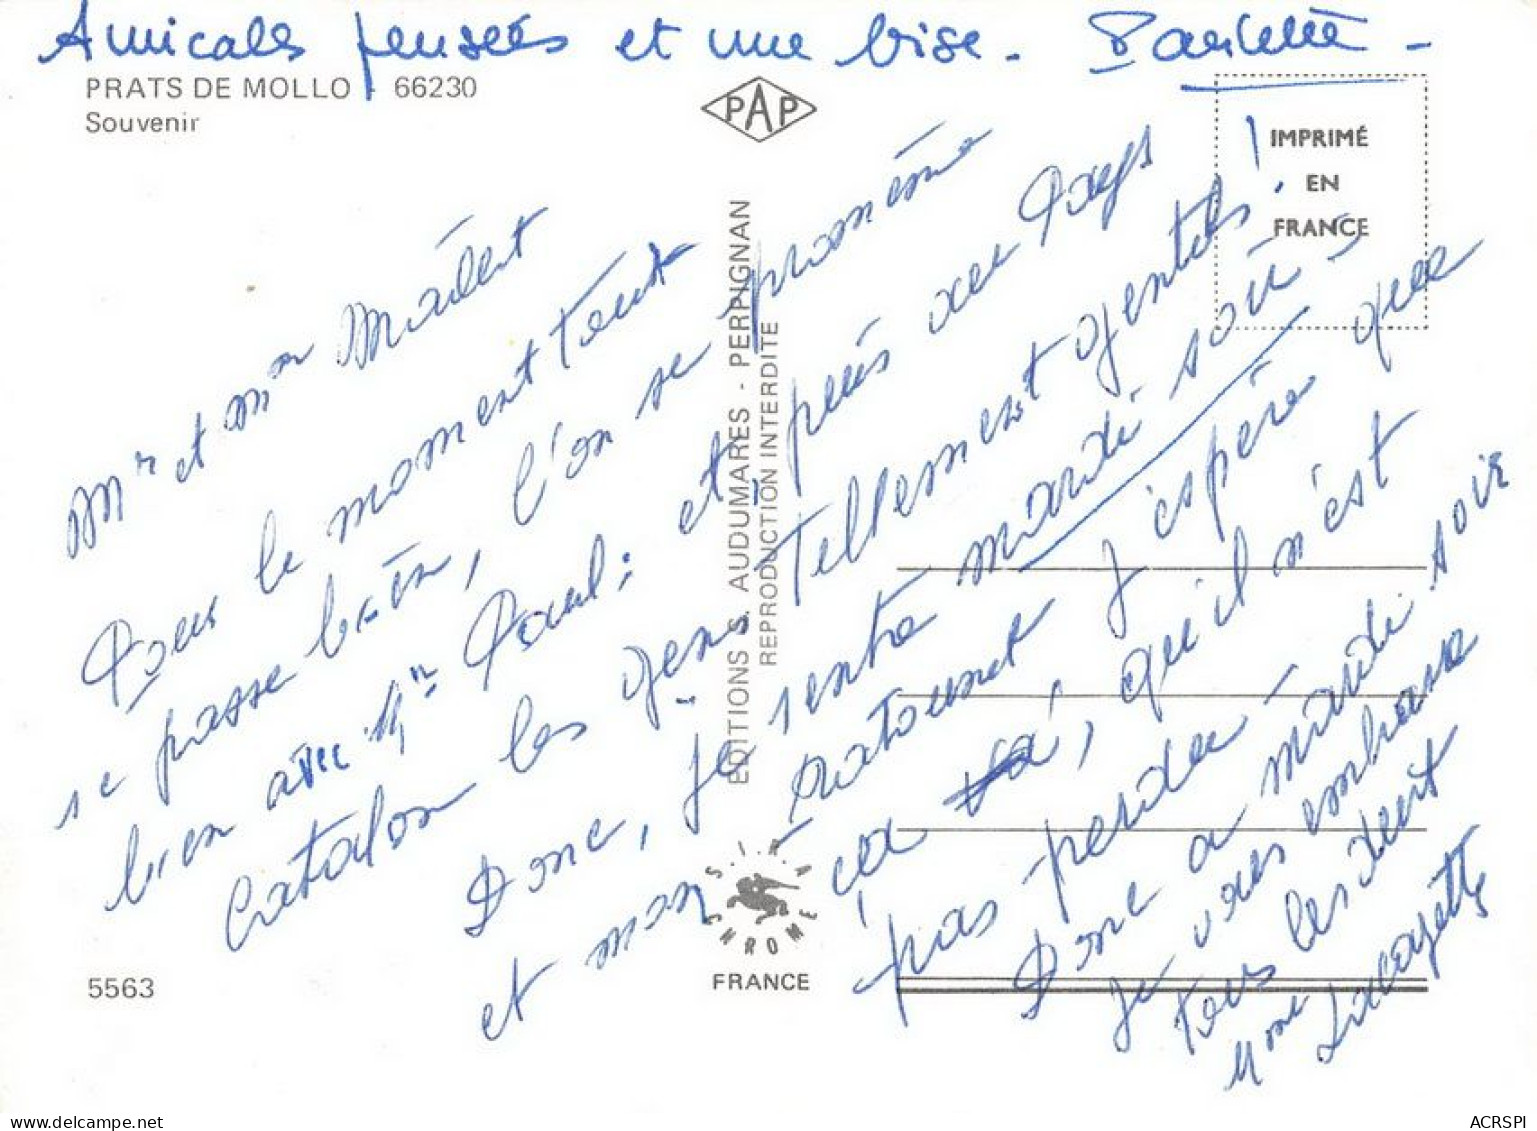 Amicales pensées et une bise. Paulette
PRATS DE MOLLO - 66230
Souvenir
PAP
IMPRIMÉ
EN
FRANCE
EDITIONS S. AUDUMARES - PERPIGNAN
REPRODUCTION INTERDITE
Mr et Mme Maillet
Pour le moment tout
se passe bien, l'on se promène
bien avec Mr Paul; et puis au Pays
Catalan les gens tellement gentils!
Donc, je rentre mardi soir
et mon J'espère que
ça va, qu'il n'est
pas perdu
Donc a mardi soir
Je vous embrasse
tous les deux
Mme Lacayette
S.I.R.A
CHROME
FRANCE
5563
ACRSPI